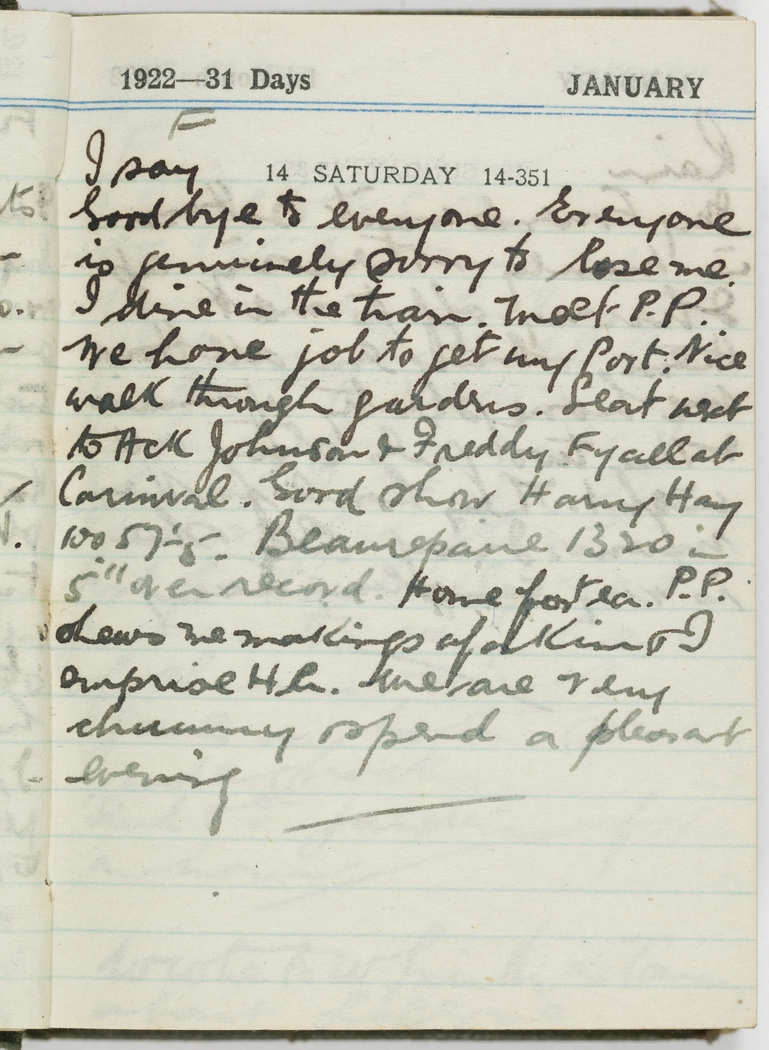 1922—31 Days JANUARY
F
I say 14 SATURDAY 14-351
Good bye to everyone. Everyone
is genuinely sorry to lose me.
I dine in the train. Meet P.P.
We have job to get my Port. Nice
walk through gardens. Seat next
to Ack Johnson & Freddy Fyall at
Carnival. Good show Harry Hay
100 57⅕. Beaurepaire 1320 in
5" over record. Home for tea. P.P.
shews me makings of a Kimo & I
surprise Hh. We are very
chummy & spend a pleasant
evening